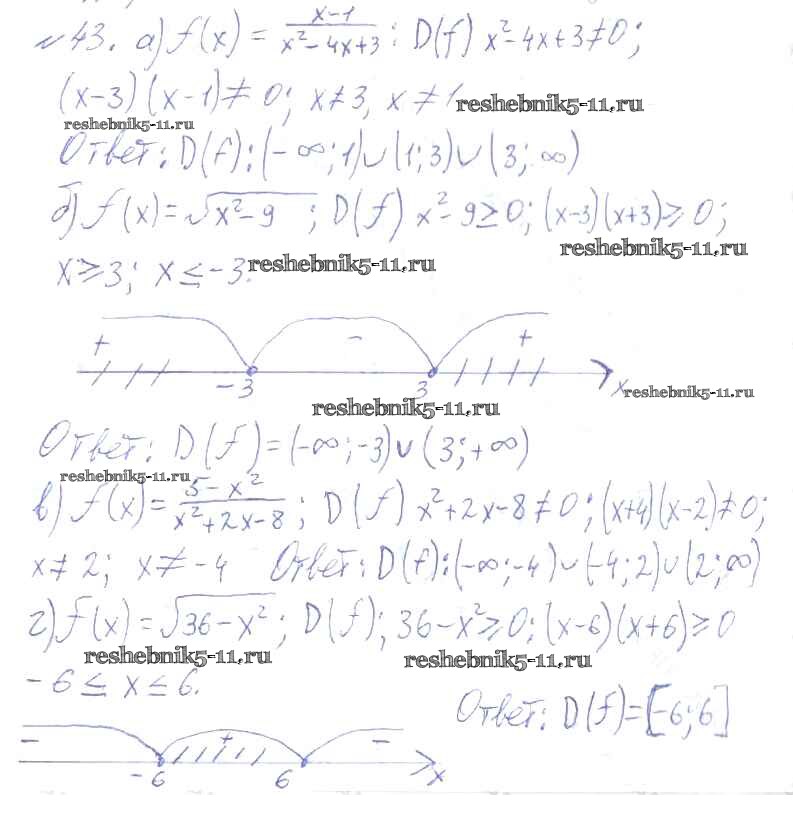 №43. а) f(x) = x-1 / x²-4x+3 ; D(f) x²-4x+3≠0;
(x-3)(x-1)≠0; x≠3, x≠1 reshebnik5-11.ru
reshebnik5-11.ru
Ответ: D(f): (-∞; 1)∪(1; 3)∪(3; ∞)
б) f(x)=√x²-9 ; D(f) x²-9≥0; (x-3)(x+3)≥0;
reshebnik5-11.ru
x≥3; x≤-3. reshebnik5-11.ru
+ - +
-3 3 x reshebnik5-11.ru
reshebnik5-11.ru
Ответ: D(f)=(-∞;-3)∪(3;+∞)
reshebnik5-11.ru
в) f(x)= 5-x² / x²+2x-8 ; D(f) x²+2x-8≠0; (x+4)(x-2)≠0;
x≠2; x≠-4 Ответ: D(f): (-∞;-4)∪(-4; 2)∪(2; ∞)
г) f(x)=√36-x² ; D(f); 36-x²≥0; (x-6)(x+6)≥0
reshebnik5-11.ru reshebnik5-11.ru
-6≤x≤6.
Ответ: D(f)=[-6;6]
- + -
-6 6 x